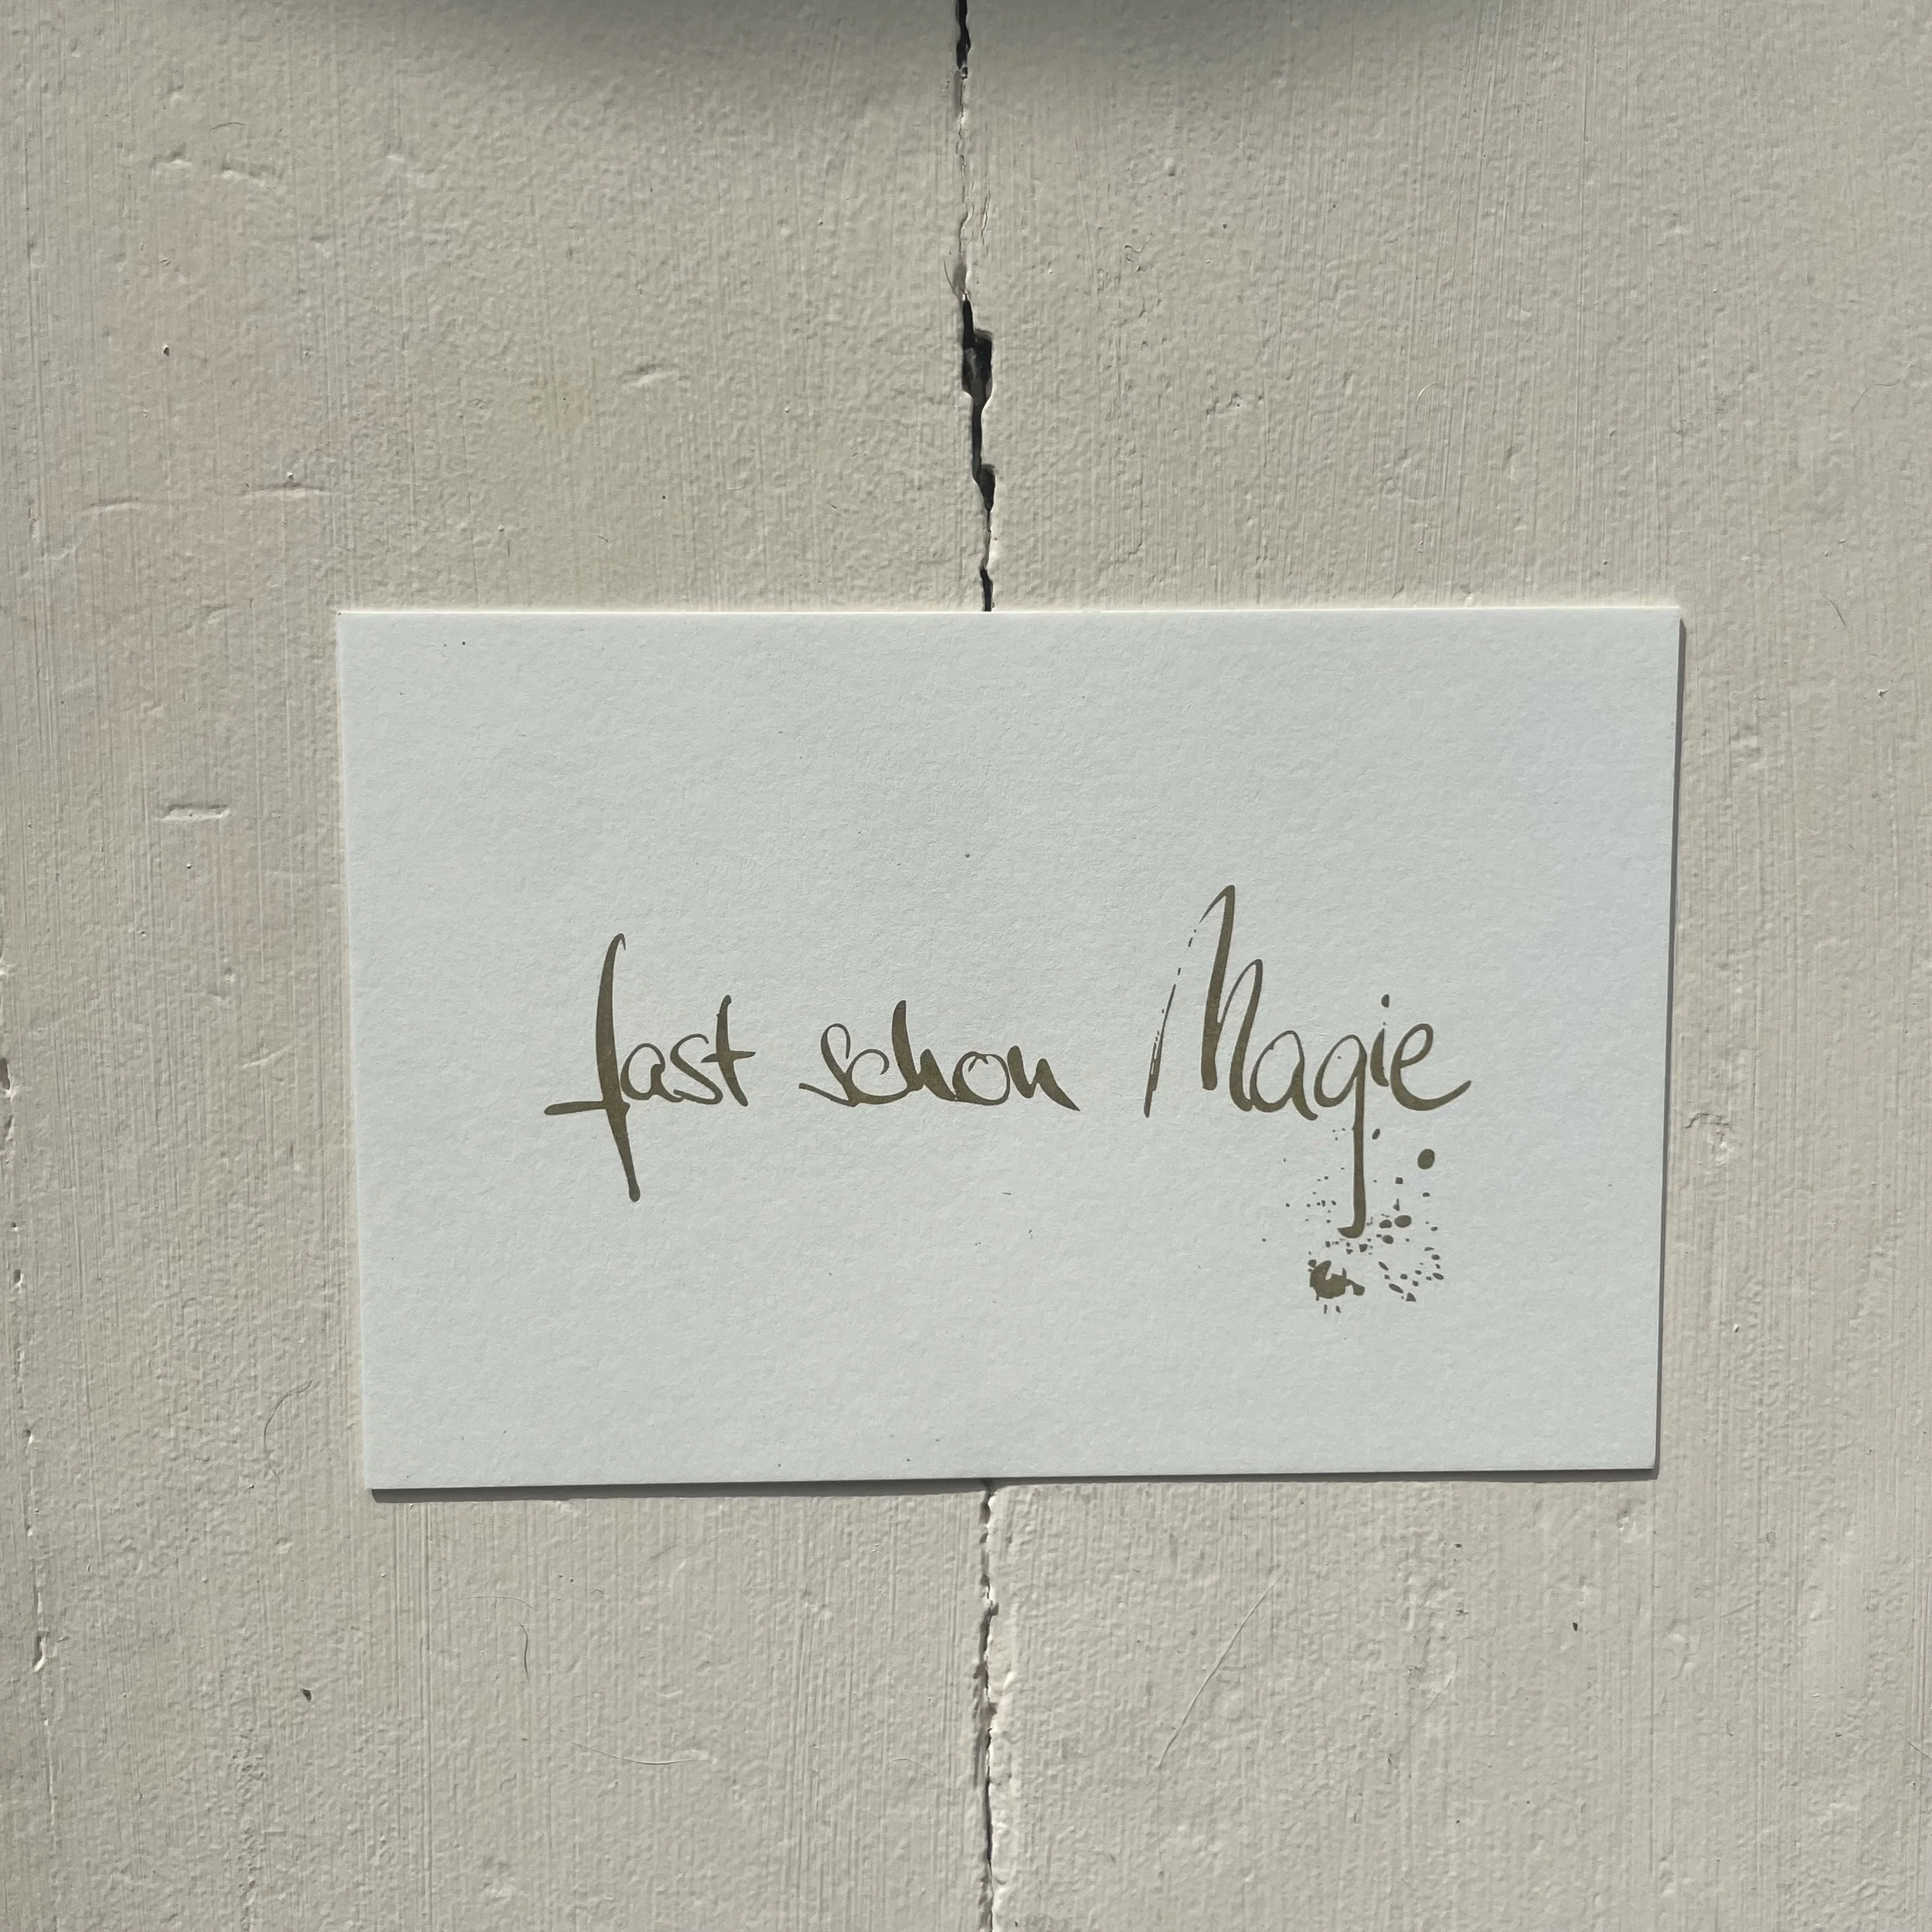 fast schon Magie